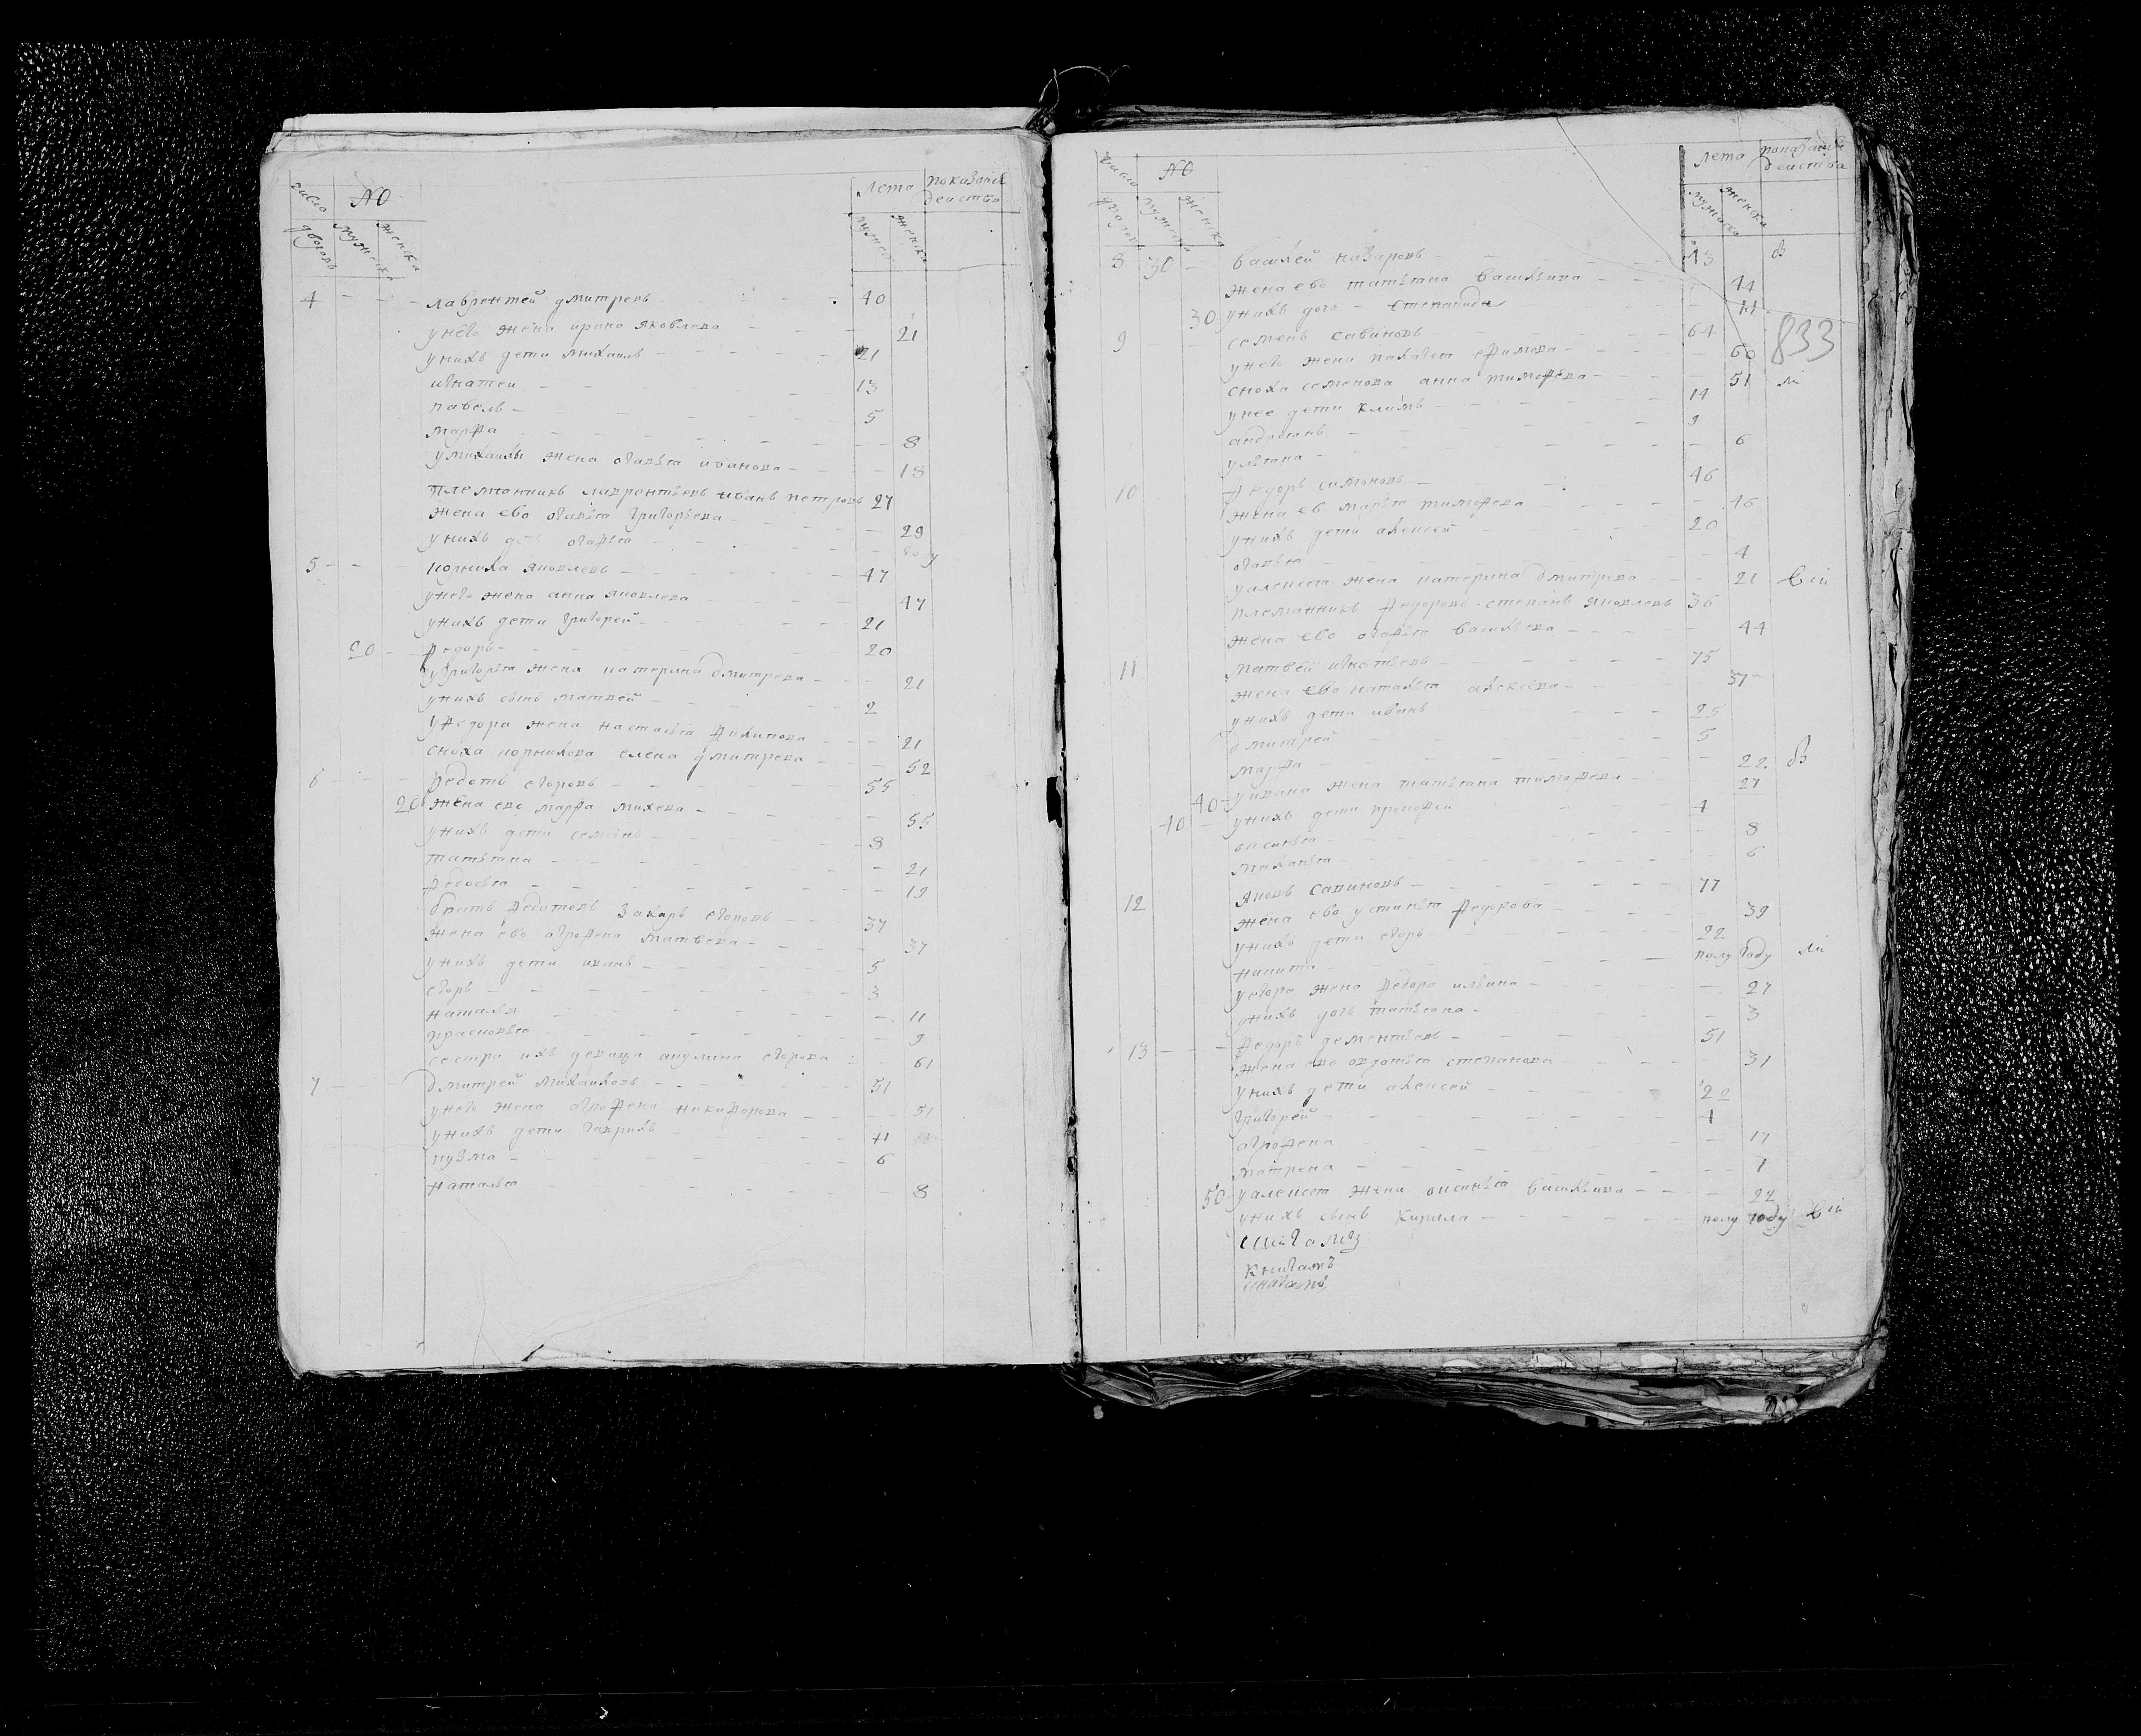 число дворовъ № мужеска женска лета мужеска женска показание действо
4 лаврентей дмитревъ 40
у него жена ирина яковлева 21
у нихъ дети михаилъ 21
игнатеи 13
павелъ 5
марфа 8
у михаилы жена агапея иванова 18
племянникъ лаврентьевъ иванъ петровъ 27
жена ево агапея григорьева 29
у нихъ дочь агафья
5 корнила яковлевъ 47
у него жена анна яковлева 47
у нихъ дети григорей 21
20 федоръ 20
у григорья жена катерина дмитрева 21
у нихъ сынъ матвей 2
у федора жена настасья филипова 21
сноха корнилова елена дмитрева 52
6 федотъ егоровъ 55
20 жена ево марфа михеева 55
у нихъ дети семенъ 8
татьяна 21
федосья 19
братъ федотовъ захаръ егоровъ 37
жена ево агрофена матвеева 37
у нихъ дети иванъ 5
егоръ 3
наталья 11
прасковья 9
сестра ихъ девица акулина егорова 61
7 дмитрей михайловъ 51
у него жена агрофена никифорова 51
у нихъ дети гаврилъ 11
кузма 6
наталья 8
число дворовъ № мужеска женска лета мужеска женска показание действа
8 30 василей назаровъ 43
жена ево татьяна васильина 44
30 у нихъ дочь степанида 11
9 семенъ савиновъ 64
833
у него жена палагея ефимова 60
сноха семенова анна тимофева 51
у нее дети климъ 14
андреянъ 9
ульяна 6
10 федоръ симоновъ 46
жена ев марья тимофева 46
у нихъ дети алексей 20
агапея 4
у алексея жена катерина дмитрева 21
племянникъ федоровъ степанъ яковлевъ 36
жена ево агафья васильева 44
11 матвей игнатьевъ 75
жена ево наталья алексеева 37
у нихъ дети иванъ 25
дмитрей 5
марфа 22
40 у ивана жена татьяна тимофева 27
40 у нихъ дети прокофей 1
аксинья 8
маланья 6
12 яковъ савиновъ 77
жена ево устинья федорова 39
у нихъ дети егоръ 22
никита полу году
у егора жена федора ильина 27
у нихъ дочь татьяна 3
13 федоръ дементьевъ 51
жена ево авдотья степанова 31
у нихъ дети алексей 20
григорей 1
агрофена 17
матрена 1
50 у алексея жена аксинья васильина 22
у нихъ сынъ кирила полу году